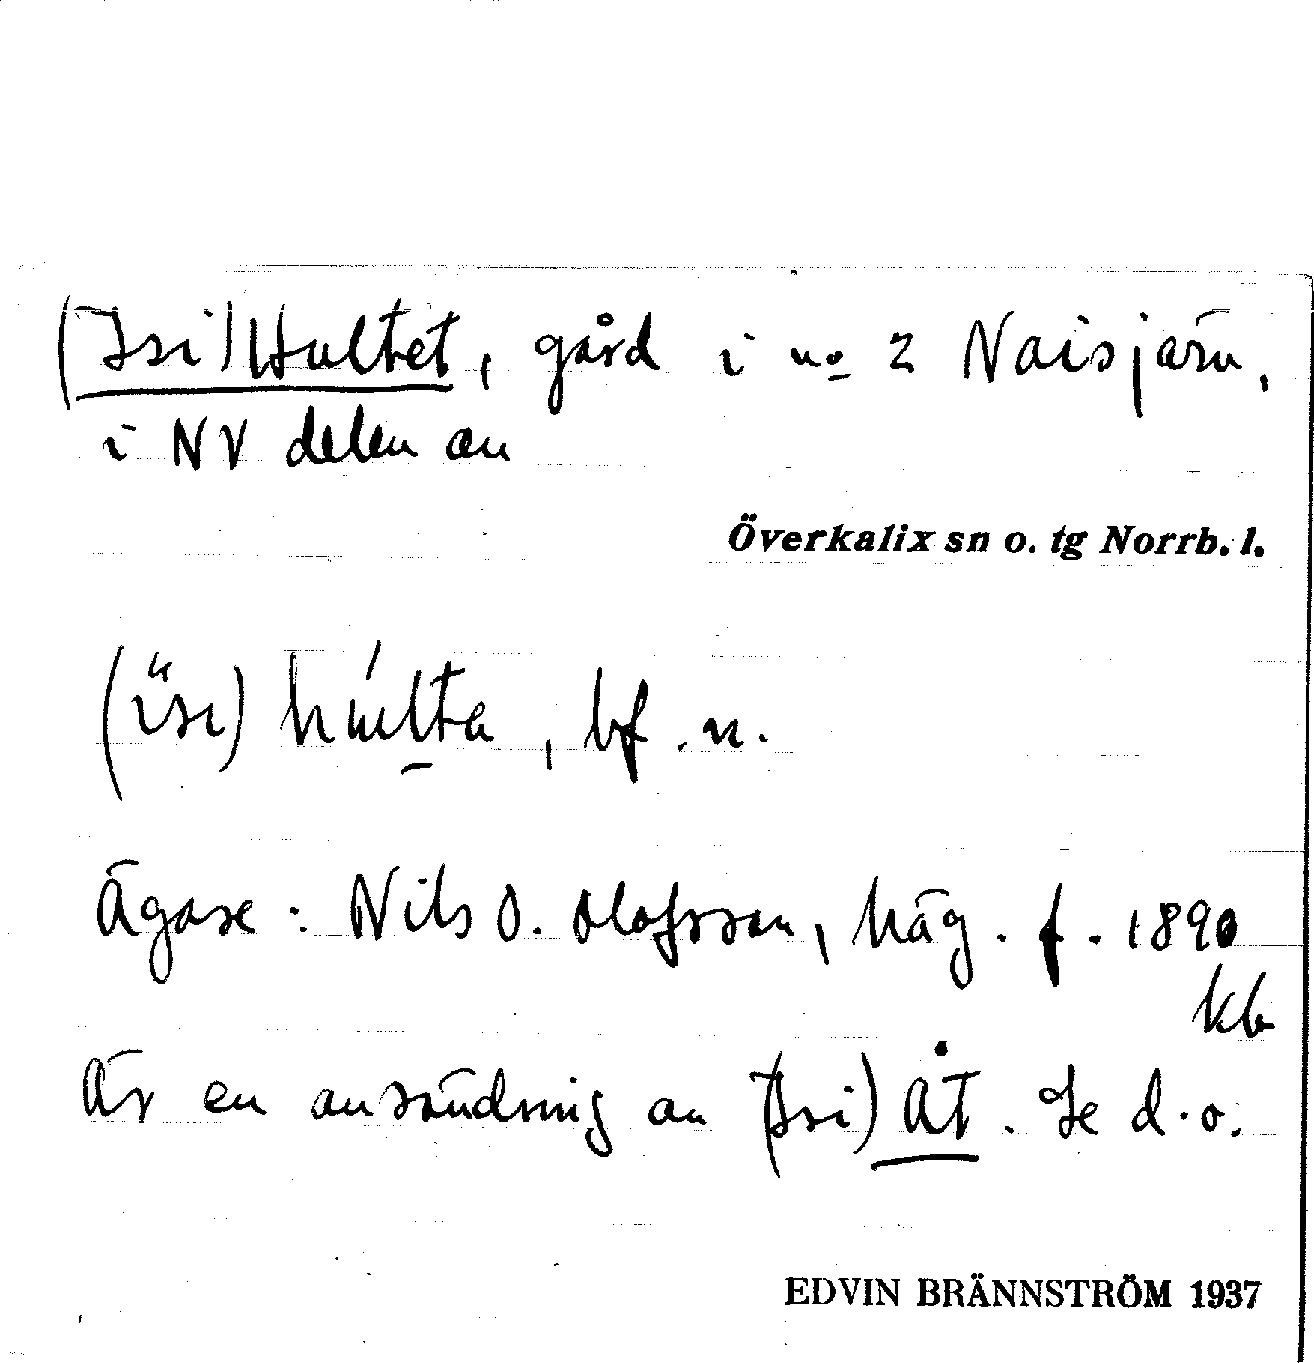 (Isi)Hultet, gård i no 2 Naisjärv,
i NV delen av
Överkalix sn o. tg Norrb. l.
(isi) húlta, bf. n.
Ägare: Nils O. Olofsson, häg. f. 1890
kb
Är en avsöndring av (Isi) ÅT. Se d.o.
EDVIN BRÄNNSTRÖM 1937